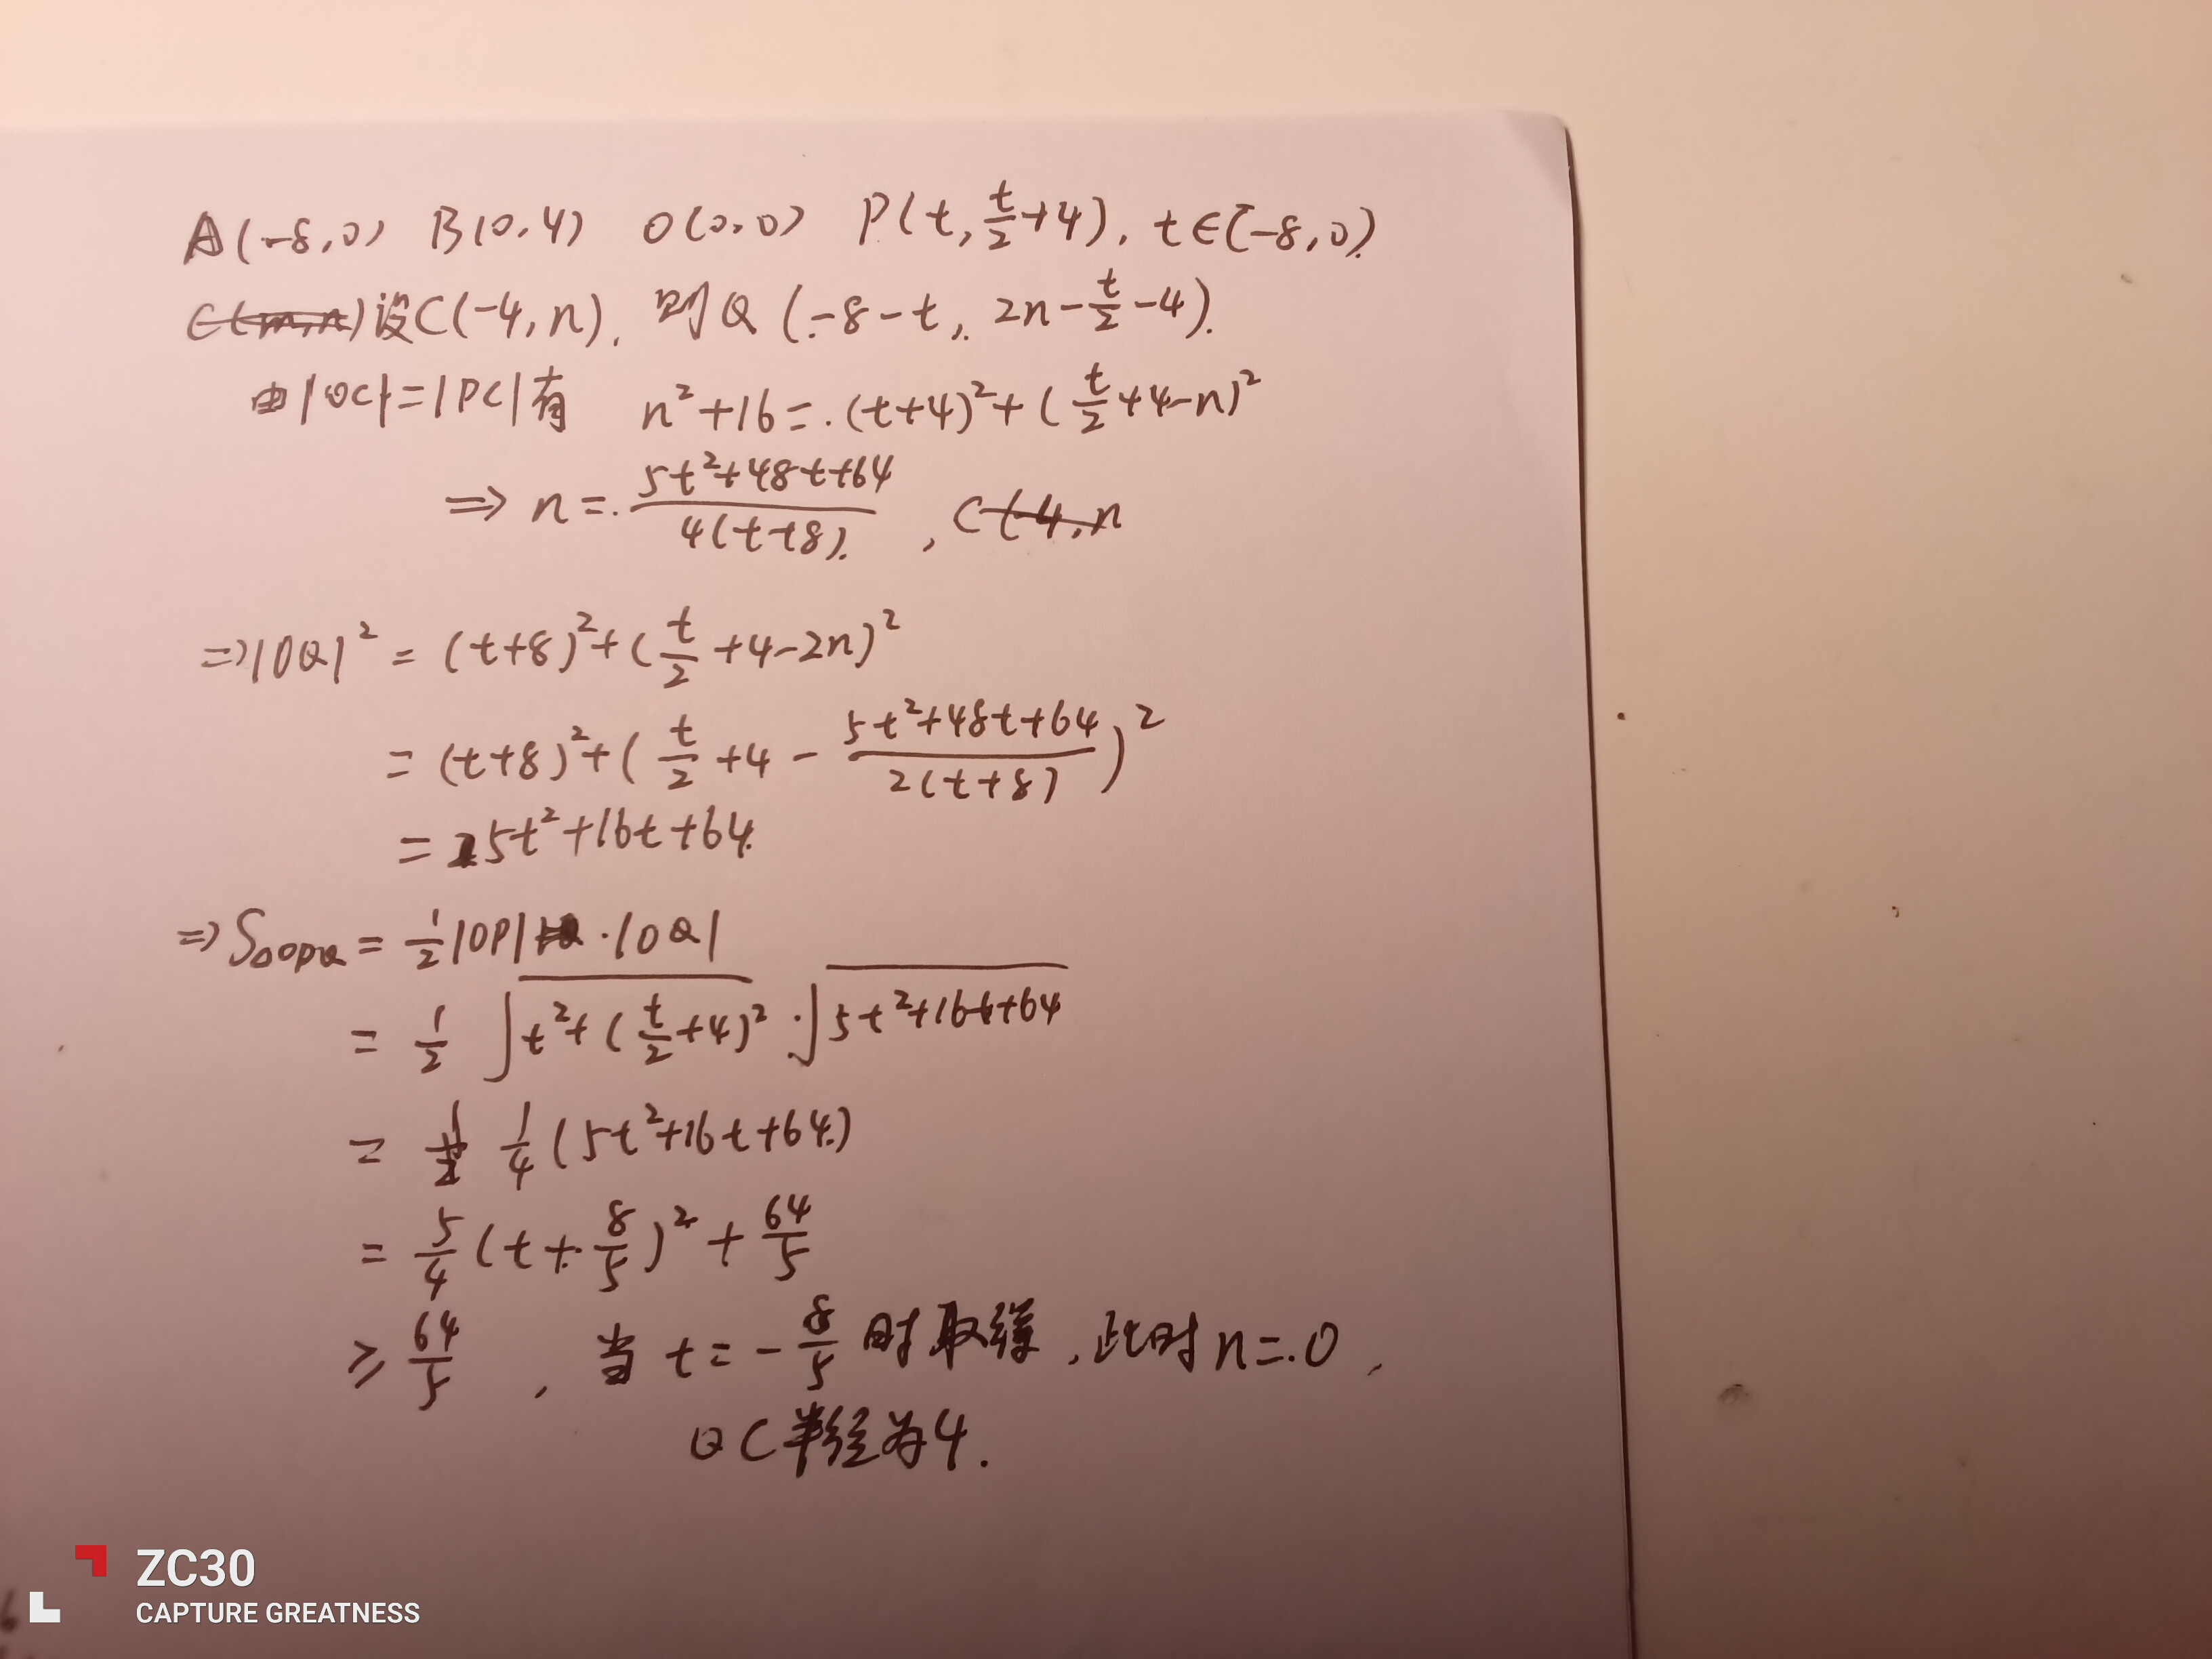 A(-8,0) B(0,4) O(0,0) P(t, t/2+4), t∈[-8,0)
设C(-4,n), 则Q(-8-t, 2n-t/2-4).
由|OC|=|PC|有 n²+16=(t+4)²+(t/2+4-n)²
⇒ n=(5t²+48t+64)/(4(t+8)),
⇒|OQ|²=(t+8)²+(t/2+4-2n)²
=(t+8)²+(t/2+4-(5t²+48t+64)/(2(t+8)))²
=5t²+16t+64
⇒S△OPQ=1/2|OP|·|OQ|
=1/2√(t²+(t/2+4)²)·√(5t²+16t+64)
=1/4(5t²+16t+64)
=5/4(t+8/5)²+64/5
≥64/5, 当t=-8/5时取得,此时n=0,
⊙C半径为4.
ZC30
CAPTURE GREATNESS